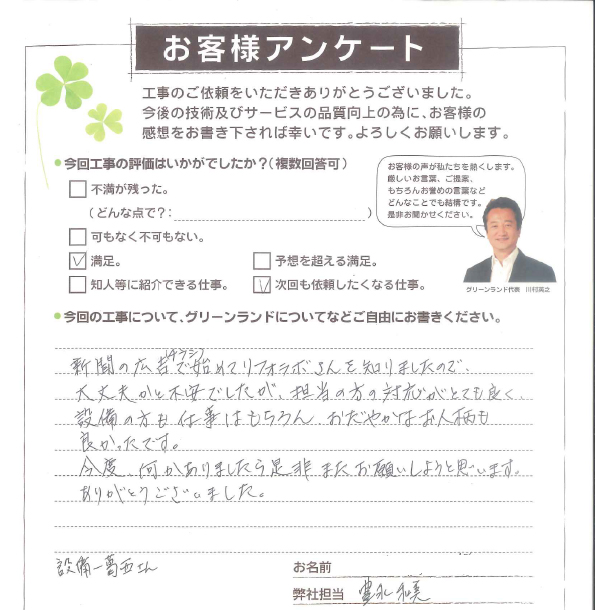 お客様アンケート
工事のご依頼をいただきありがとうございました。
今後の技術及びサービスの品質向上の為に、お客様の
感想をお書き下されば幸いです。よろしくお願いします。
●今回工事の評価はいかがでしたか?(複数回答可)
お客様の声が私たちを熱くします。
厳しいお言葉、ご提案、
もちろんお誉めの言葉など
どんなことでも結構です。
是非お聞かせください。
グリーンランド代表 川村英之
□不満が残った。
(どんな点で?:)
□可もなく不可もない。
☑満足。 □予想を超える満足。
□知人等に紹介できる仕事。 ☑次回も依頼したくなる仕事。
●今回の工事について、グリーンランドについてなどご自由にお書きください。
(チラシ)
新聞の広告で始めてリフォラボさんを知りましたので、
大丈夫かと不安でしたが、担当の方の対応がとても良く、
設備の方も仕事はもちろん、おだやかなお人柄も
良かったです。
今度、何かありましたら是非またお願いしようと思います。
ありがとうございました。
設備-葛西さん
お名前
弊社担当 豊永 和美